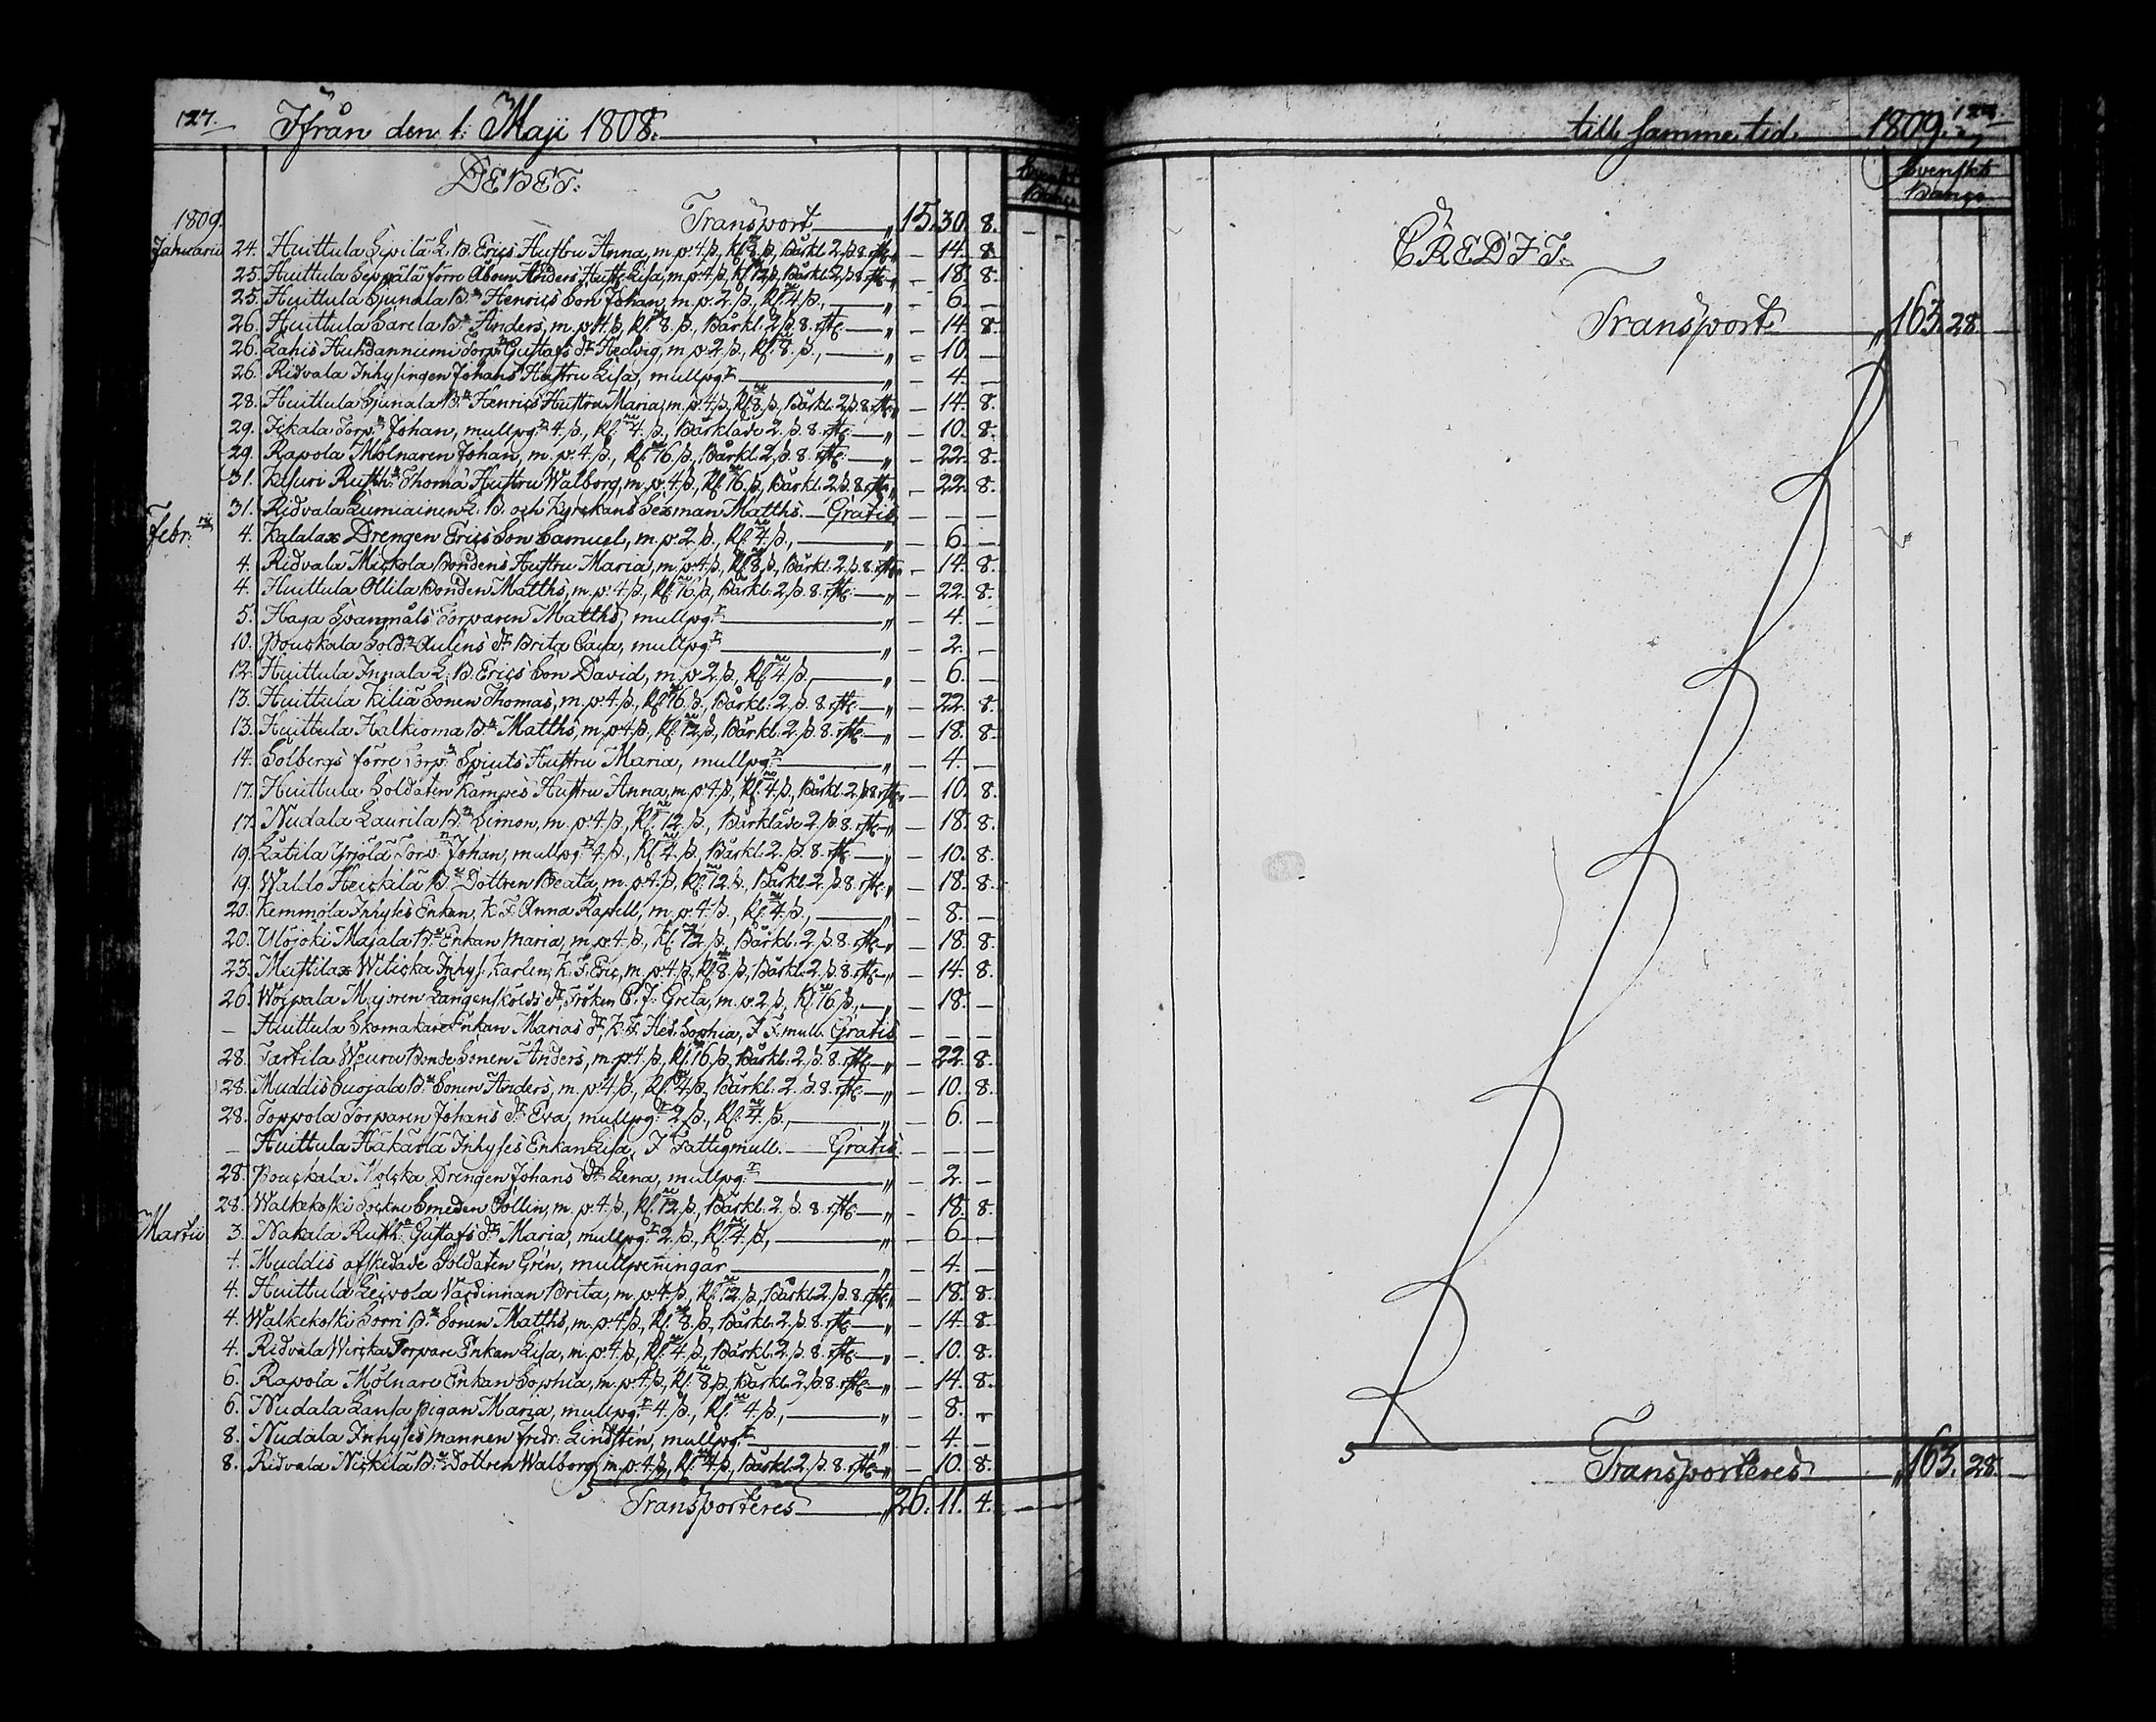 127. Ifrån den 1. Maji 1808.
DEBET.
Svenskt Banco
1809. Transport „ 15. 30. 8.
Januarii 24. Huittula Sipilä L. B. Erics Hustru Anna, m. p. 4 ß, Kl:ne 8 ß, Bårkl. 2 ß 8 rst. „ – 14. 8.
25. Huittula Seppälä förre Åboen Anders Hustr. Lisa, m. p. 4 ß, Kl:ne 12 ß, Bårkl. 2 ß 8 rst. „ – 18. 8.
25. Huittula Sjunala B:n Henrics Son Johan, m. p. 2 ß, Kl:ne 4 ß, „ – 6. –
26. Huittula Sarela B:n Anders, m. p. 4 ß, Kl:ne 8 ß, Bårkl. 2 ß 8 rst. „ – 14. 8.
26. Lahis Huhdanniemi Torp:n Gustafs dr Hedvig, m. p. 2 ß, Kl:ne 8 ß, „ – 10. –
26. Ridvala Inhysingen Johans Hustru Lisa, mullpg:r „ – 4. –
28. Huittula Sjunala B:n Henrics Hustru Maria, m. p. 4 ß, Kl:ne 8 ß, Bårkl. 2 ß 8 rst. „ – 14. 8.
29. Jckala Torp:n Johan, mullpg:r 4 ß, Kl:ne 4 ß, Bårkläde 2 ß 8 rst. „ – 10. 8.
29. Rapola Mölnaren Johan, m. p. 4 ß, Kl:ne 16 ß, Bårkl. 2 ß 8 rst. „ – 22. 8.
31. Kelsuri Rusth:n Thoma Hustru Walborg, m. p. 4 ß, Kl:ne 16 ß, Bårkl. 2 ß 8 rst. „ – 22. 8.
31. Ridvala Lumiainen L. B. och Kyrckans Sexman Matths. Gratis – – –
Febr:rii 4. Kalalax Drengen Erics Son Samuel, m. p. 2 ß, Kl:ne 4 ß, „ – 6. –
4. Ridvala Mickola Bondens Hustru Maria, m. p. 4 ß, Kl:ne 8 ß, Bårkl. 2 ß 8 rst. „ – 14. 8.
4. Huittula Ollila Bonden Matths, m. p. 4 ß, Kl:ne 16 ß, Bårkl. 2 ß 8 rst. „ – 22. 8.
5. Haga Spanmåls Torparen Matths, mullpg:r „ – 4. –
10. Pouckala Sold:n Aulins dr Brita Caja, mullpg:r „ – 2. –
12. Huittula Innala L. B. Erics Son David, m. p. 2 ß, Kl:ne 4 ß, „ – 6. –
13. Huittula Kiliä Sonen Thomas, m. p. 4 ß, Kl:ne 16 ß, Bårkl. 2 ß 8 rst. „ – 22. 8.
13. Huittula Halkioma B:n Matths, m. p. 4 ß, Kl:ne 12 ß, Bårkl. 2 ß 8 rst. „ – 18. 8.
14. Solbergs förre Torp:n Spiuts Hustru Maria, mullpg:r „ – 4. –
17. Huittula Soldaten Kämpes Hustru Anna, m. p. 4 ß, Kl:ne 4 ß, Bårkl. 2 ß 8 rst. „ – 10. 8.
17. Nudala Laurila B:n Simon, m. p. 4 ß, Kl:ne 12 ß, Bårkläde 2 ß 8 rst. „ – 18. 8.
19. Latila Yrjölä Torp:n Johan, mullpg:r 4 ß, Kl:ne 4 ß, Bårkl. 2 ß 8 rst. „ – 10. 8.
19. Waldo Heickilä B:e Dottren Beata, m. p. 4 ß, Kl:ne 12 ß, Bårkl. 2 ß 8 rst. „ – 18. 8.
20. Kemmola Inhyses Enkan, K. F. Anna Rapell, m. p. 4 ß, Kl:ne 4 ß, „ – 8. –
20. Uldjoki Majala B:e Enkan Maria, m. p. 4 ß, Kl:ne 12 ß, Bårkl. 2 ß 8 rst. „ – 18. 8.
23. Mustilax Witicka Inhys Karlen, K. F. Eric, m. p. 4 ß, Kl:ne 8 ß, Bårkl. 2 ß 8 rst. „ – 14. 8.
26. Woipala Majoren Langenskölds dr Fröken C. F. Greta, m. p. 2 ß, Kl:ne 16 ß, „ – 18. –
– Huittula Skomakare Enkan Marias dr, K. F. Hed. Sophia, F. F. mull. Gratis – – –
28. Tarttila Weuru Bonde Sonen Anders, m. p. 4 ß, Kl:ne 16 ß, Bårkl. 2 ß 8 rst. „ – 22. 8.
28. Muddis Suojala B:e Sonen Anders, m. p. 4 ß, Kl:ne 4 ß, Bårkl. 2 ß 8 rst. „ – 10. 8.
28. Toppola Torparen Johans dr Eva, mullpg:r 2 ß, Kl:ne 4 ß, „ – 6. –
– Huittula Hakarla Inhyses Enkan Lisa, F. Fattigmull. Gratis – – –
28. Pouckala Nolcka Drengen Johans dr Lena, mullpg:r „ – 2. –
28. Walkekoski Sockne Smeden Sollin, m. p. 4 ß, Kl:ne 12 ß, Bårkl. 2 ß 8 rst. „ – 18. 8.
Martii 3. Nakala Rusth:n Gustafs dr Maria, mullpg:r 2 ß, Kl:ne 4 ß, „ – 6. –
4. Muddis afskedade Soldaten Gren, mullpeningar „ – 4. –
4. Huittula Leivola Värdinnan Brita, m. p. 4 ß, Kl:ne 12 ß, Bårkl. 2 ß 8 rst. „ – 18. 8.
4. Walkekoski Sorri B:e Sonen Matths, m. p. 4 ß, Kl:ne 8 ß, Bårkl. 2 ß 8 rst. „ – 14. 8.
4. Ridvala Wircka Torpare Enkan Lisa, m. p. 4 ß, Kl:ne 4 ß, Bårkl. 2 ß 8 rst. „ – 10. 8.
6. Rapola Mölnare Enkan Sophia, m. p. 4 ß, Kl:ne 8 ß, Bårkl. 2 ß 8 rst. „ – 14. 8.
6. Nudala Lansa pigan Maria, mullpg:r 4 ß, Kl:ne 4 ß, „ – 8. –
8. Nudala Inhyses mannen Fredr: Lindsten, mullpg:r „ – 4. –
8. Ridvala Nickilä B:e Dottren Walborg, m. p. 4 ß, Kl:ne 4 ß, Bårkl. 2 ß 8 rst. „ – 10. 8.
Transporteres „ 26. 11. 4. – –
till samme tid 1809. 127.
Svenskt Banco
CREDIT.
Transport „ 163. 28. –
Transporteres „ 163. 28. –